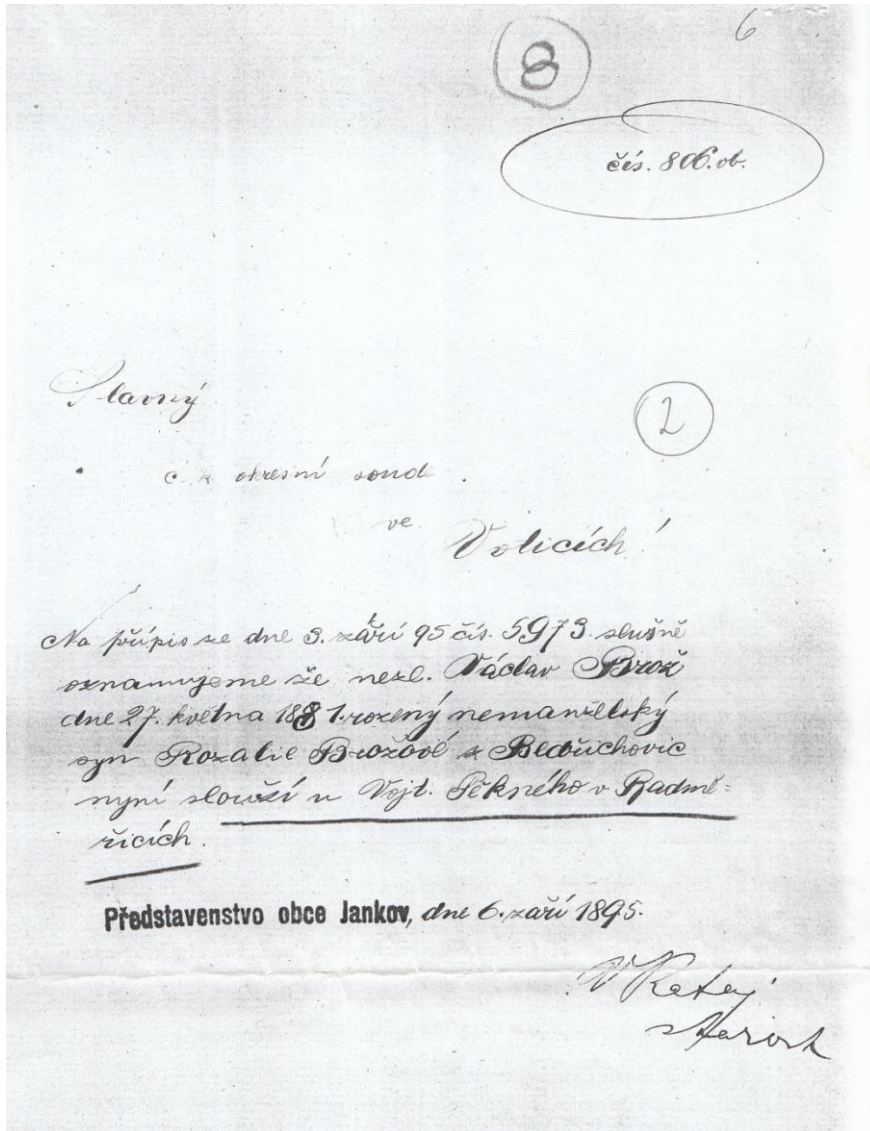 6
8
čís. 806.ob.
Slavný
2
c k okresní soud
ve
Voticích!
Na přípis ze dne 3. září 95 čís. 5973. slušně
oznamujeme že nezl. Václav Brož
dne 27. května 1881. rozený nemanželský
syn Rozalie Brožové z Bedřichovic
nyní slouží u Vojt. Pěkného v Radmě=
řicích.
Představenstvo obce Jankov, dne 6. září 1895.
V Rataj
starost